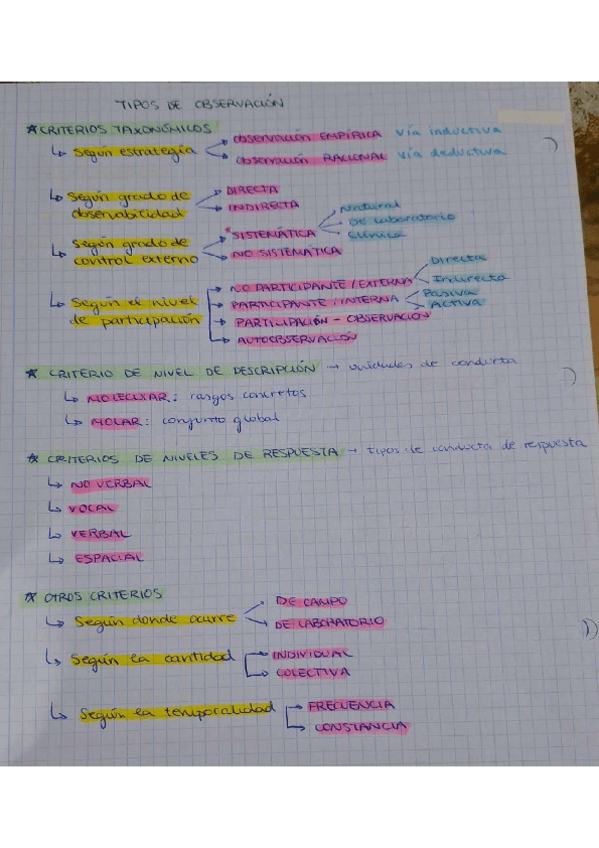 TIPOS DE OBSERVACIÓN
★ CRITERIOS TAXONÓMICOS
↳ Según estrategia
→ Observación EMPÍRICA vía inductiva
→ Observación RACIONAL vía deductiva
↳ Según grado de observabilidad
→ DIRECTA
→ INDIRECTA
↳ Según grado de control externo
→ SISTEMÁTICA
Natural
De laboratorio
Clínica
→ NO SISTEMÁTICA
↳ Según el nivel de participación
→ NO PARTICIPANTE / EXTERNA
Directa
Indirecta
→ PARTICIPANTE / INTERNA
Pasiva
Activa
→ PARTICIPACIÓN - OBSERVACIÓN
→ AUTOOBSERVACIÓN
★ CRITERIO DE NIVEL DE DESCRIPCIÓN → unidades de conducta
↳ MOLECULAR: rasgos concretos
↳ MOLAR: conjunto global
★ CRITERIOS DE NIVELES DE RESPUESTA → tipos de conducta de respuesta
↳ NO VERBAL
↳ VOCAL
↳ VERBAL
↳ ESPACIAL
★ OTROS CRITERIOS
↳ Según donde ocurre
→ DE CAMPO
→ DE LABORATORIO
↳ Según la cantidad
→ INDIVIDUAL
→ COLECTIVA
↳ Según la temporalidad
→ FRECUENCIA
→ CONSTANCIA